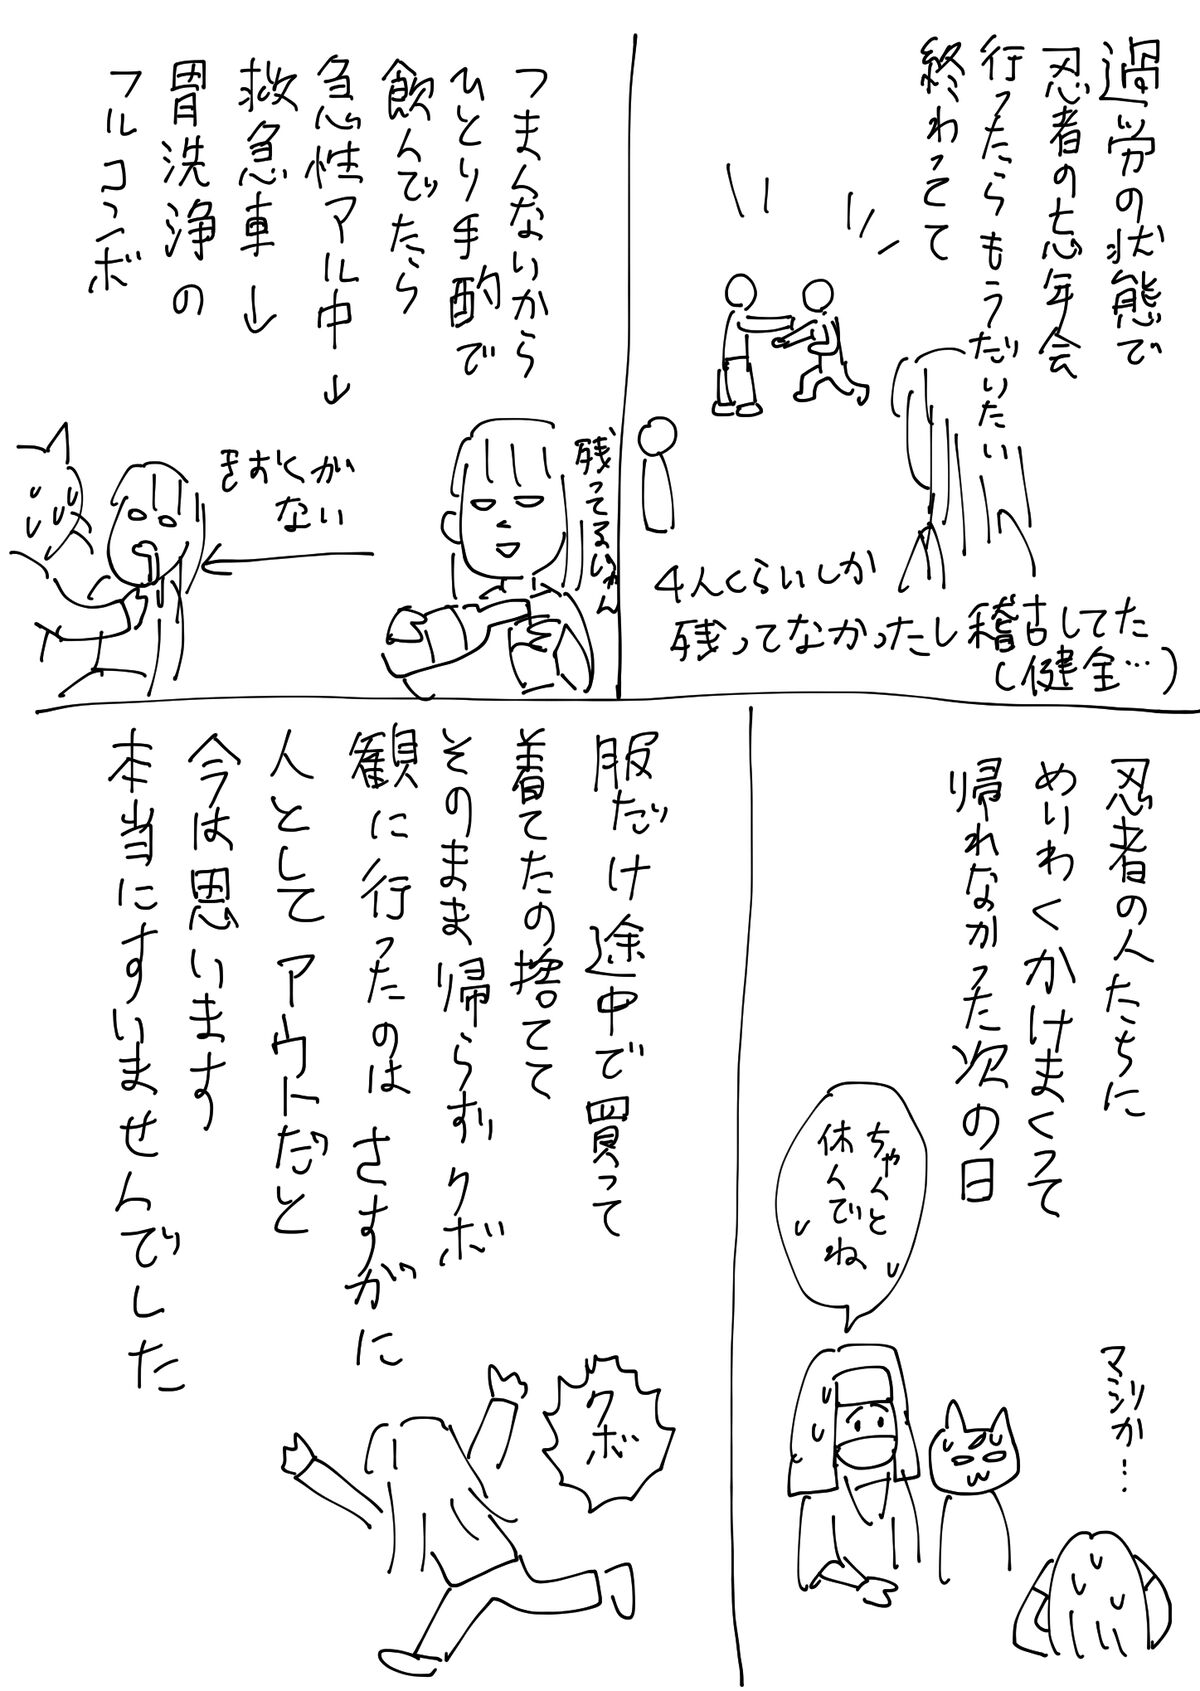 過労の状態で
忍者の忘年会
行ったらもうだいたい
終わってて
4人くらいしか
残ってなかったし稽古してた
(健全…)
つまんないから
ひとり手酌で
飲んでたら
急性アル中→
救急車→
胃洗浄の
フルコンボ
残ってるいん
きおくが
ない
忍者の人たちに
めいわくかけまくって
帰れなかった次の日
ちゃんと
休んでね
マジか…
服だけ途中で買って
着てたの捨てて
そのまま帰らずクボ
観に行ったのはさすがに
人としてアウトだと
今は思います
本当にすいませんでした
クボ